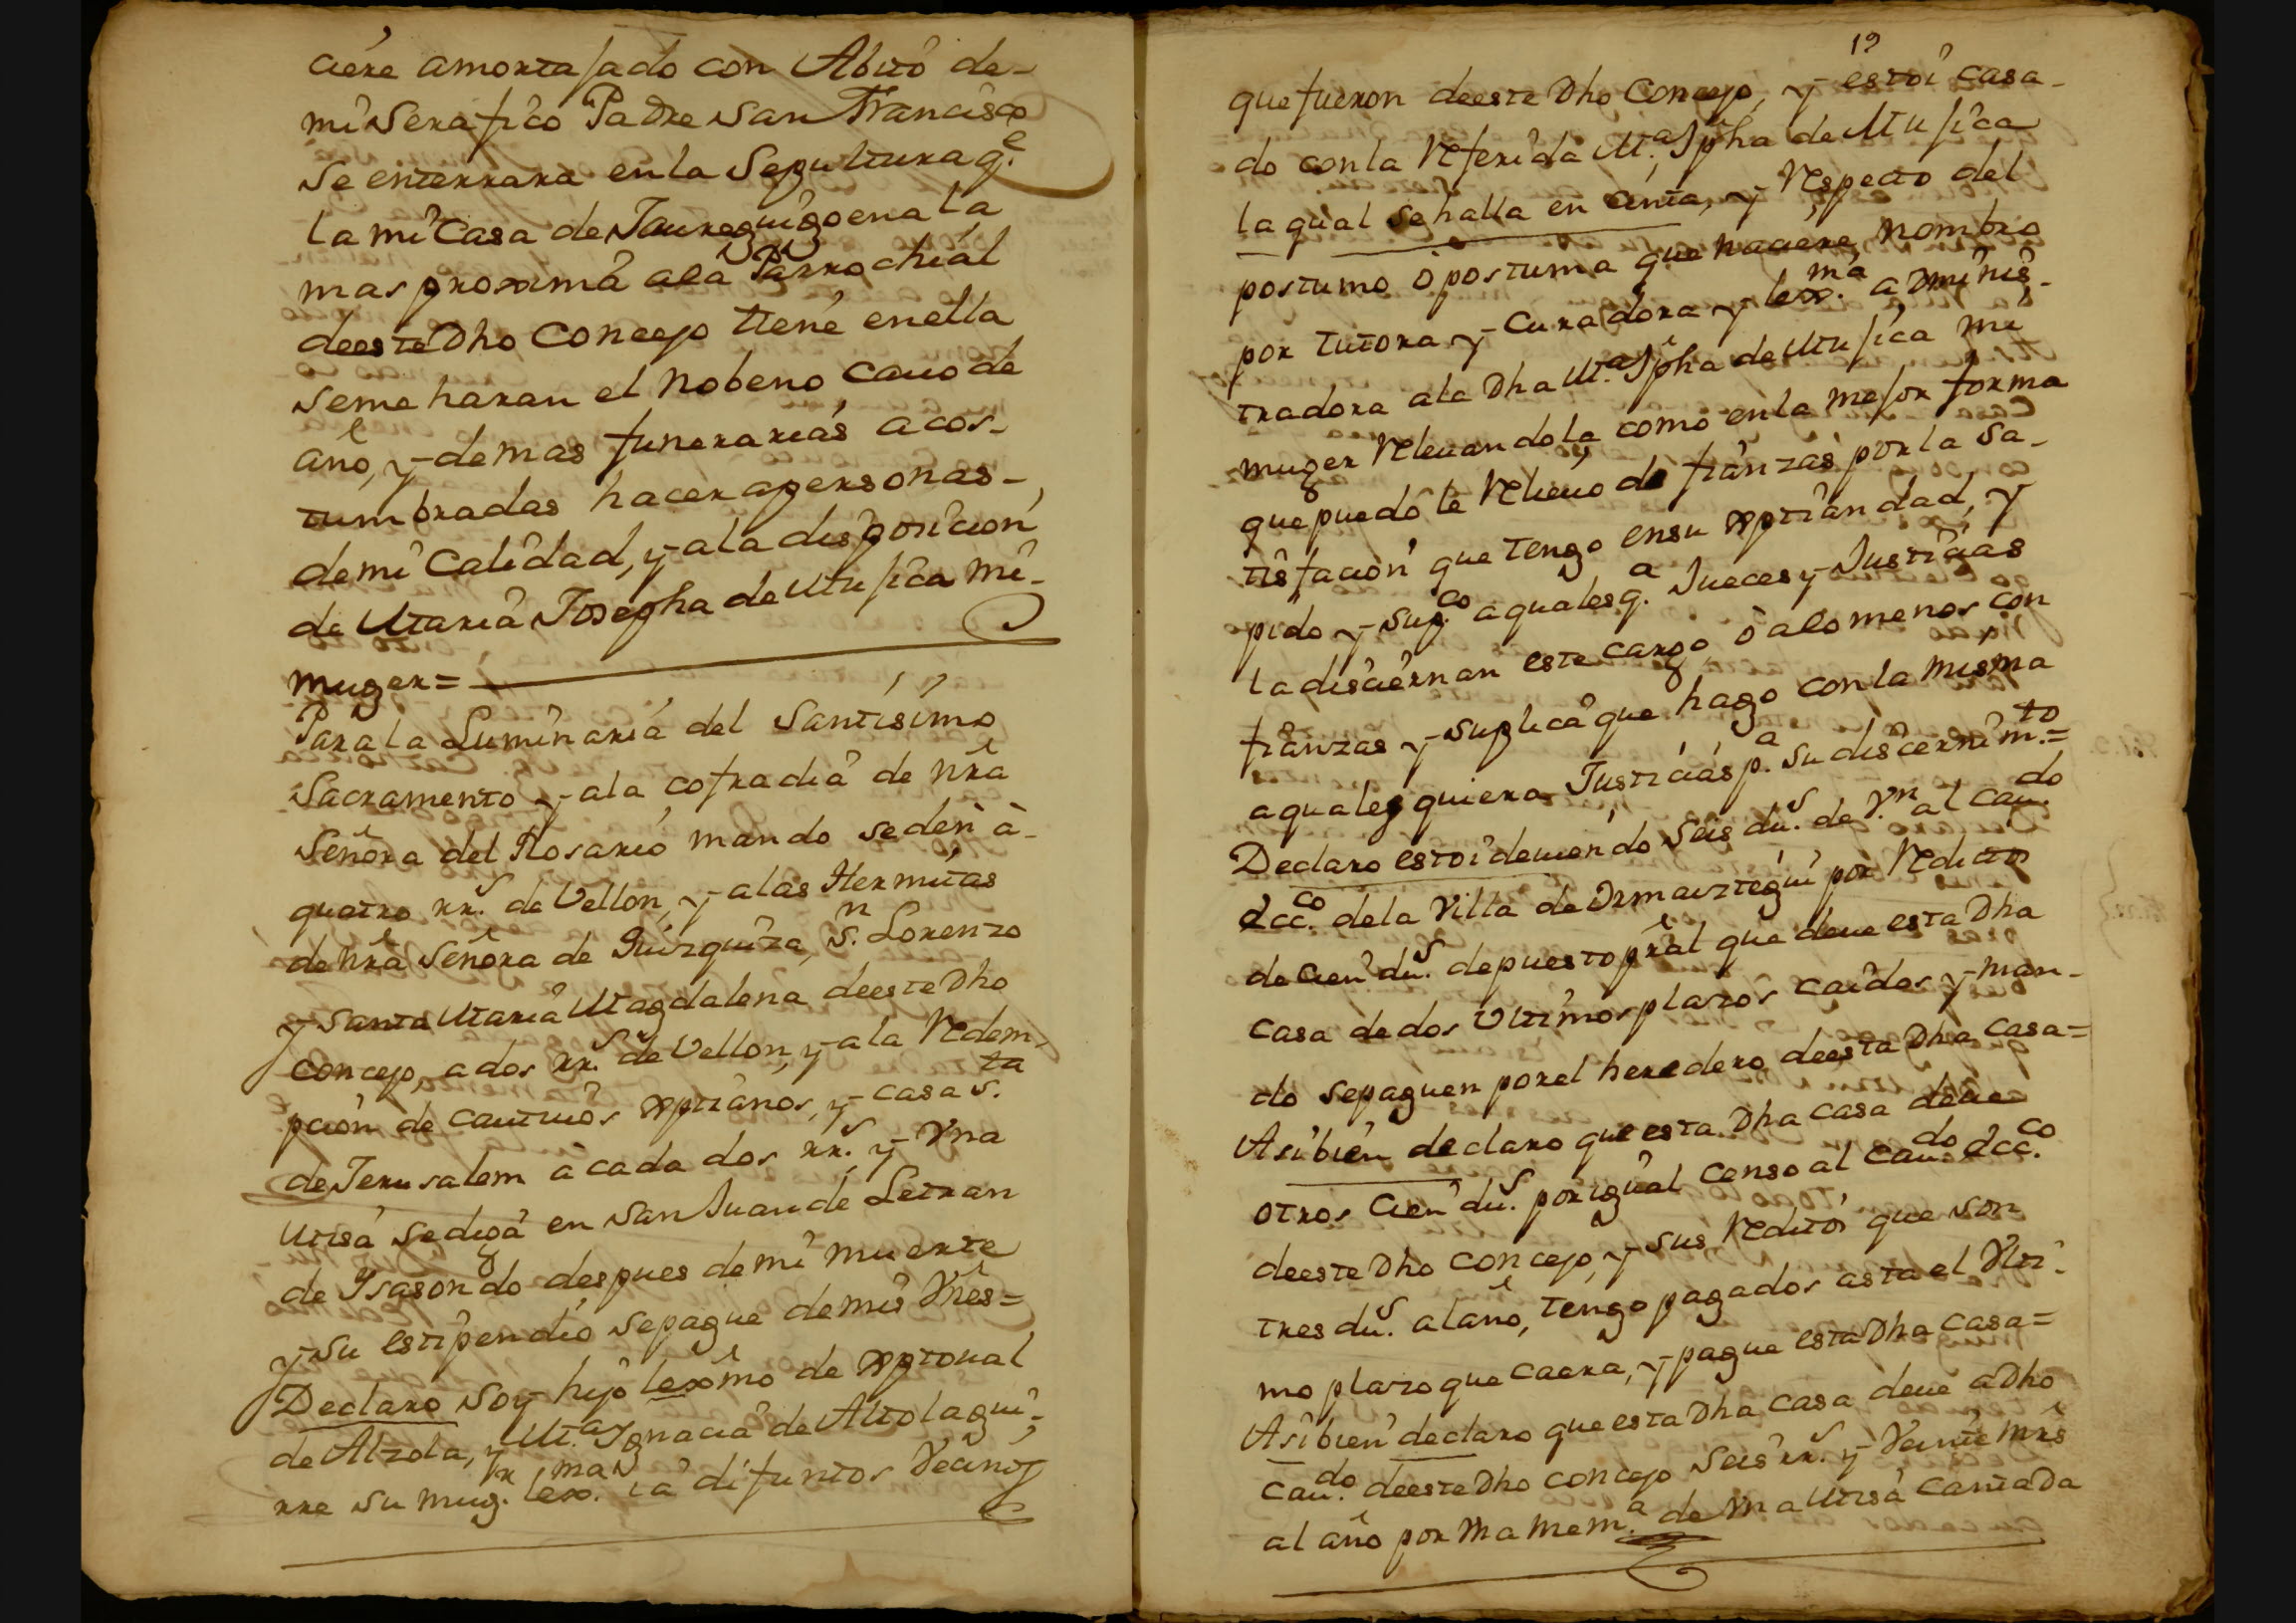 ciere amortajado con Abitô de-
mi Serafico Padre San Francisco
Se enterrara en la Sepultura q.e
la mi Casa de Jaureguigoena la
mas proxima a la Parrochial
de este Dho Concejo tiene en ella
se me haran el Nobeno Cauo de
año, y demas funerarias acos-
tumbradas hacer a personas-
de mi Calidad, y a la disposicion
de Maria Josepha de Mujica mi-
muger=
Para la Luminaria del Santisimo
Sacramento y a la cofradia de nrâ
Señora del Rosario mando se den à-
quatro rr.s de Vellon, y a las Hermitas
de nrâ Señora de Guizquiza, S.n Lorenzo
y Santa Maria Magdalena de este Dho
Concejo, a dos rr.s de Vellon, y a la Redem-
pcion de cautiuos xptianos, y casa S.ta
de Jerusalem à cada dos rr.s y Vna
Misa se diga en San Juan de Letran
de Isasondo despues de mi muerte
y su estipendio se pague de mis Vnês=
Declaro soy hijo lexmô de xptoual
de Alzola, y M.a Ignacia de Altolagui-
rre su mug.r lex.ma ia difuntos Vecinos
19
que fueron de este Dho Concejo, y estoi casa-
do con la Referida M.a Jpha de Mujica
la qual se halla en cinta, y Respecto del
postumo ò postuma que naciere, nombro
por tutora y Curadora y lex.ma adminis-
tradora a la Dha M.a Jpha de Mujica mi
muger Releuandola como en la mejor forma
que puedo la Relieuo de fianzas por la Sa-
tisfacion que tengo en su xptiandad, y
pido y Sup.co a qualesq.a Jueces y Justicias
la disciernan este cargo, ò a lo menos con
fianzas y suplica que hago con la misma
a qualesquiera Justicias p.a su discernim.to=
Declaro estoi deuiendo Seis du.s de V.n al Cau.do
Ecc.co de la Villa de Ormaiztegui por Reditos
de Cien du.s de puesto prâl que deue esta Dha
casa de dos Vltimos plazos caidos y man-
do se paguen por el heredero de esta Dha casa=
Asibien declaro que esta Dha casa deue
otros Cien du.s por igual Censo al Cau.do Ecc.co
de este Dho Concejo, y sus Reditos que son
tres du.s al año, tengo pagados asta el Vlti-
mo plazo que caera, y pague esta Dha casa=
Asibien declaro que esta Dha casa deue a Dho
Cau.do de este Dho Concejo Seis rr.s y Veinte mrs
al año por Vna mem.a de Vna Misa Cantada